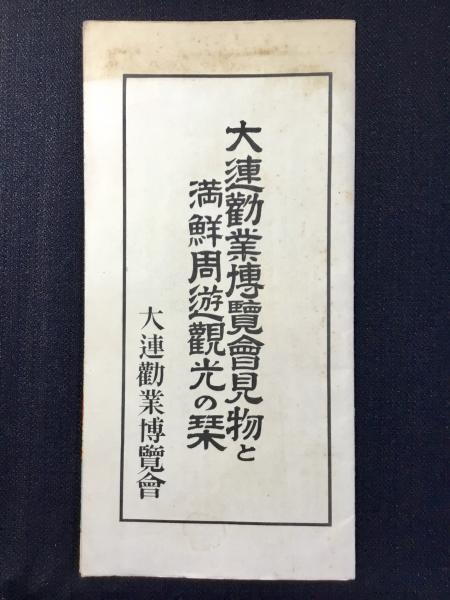 大連勸業博覽會見物と
満鮮周遊觀光の栞
大連勸業博覽會